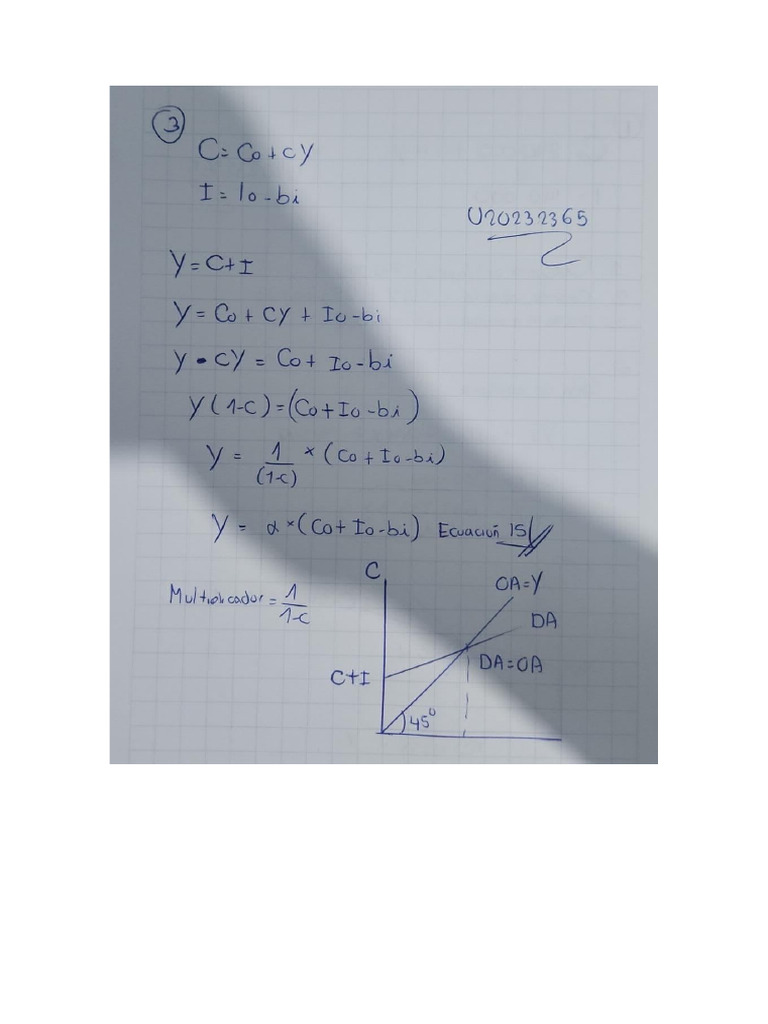 3
C = Co + cY
I = Io - bi
U20232365
Y = C + I
Y = Co + CY + Io - bi
Y - CY = Co + Io - bi
Y (1-C) = (Co + Io - bi)
Y = 1/(1-C) × (Co + Io - bi)
Y = α × (Co + Io - bi) Ecuación 15
Multiplicador = 1/1-C
C
OA=Y
DA
DA=OA
C+I
45°